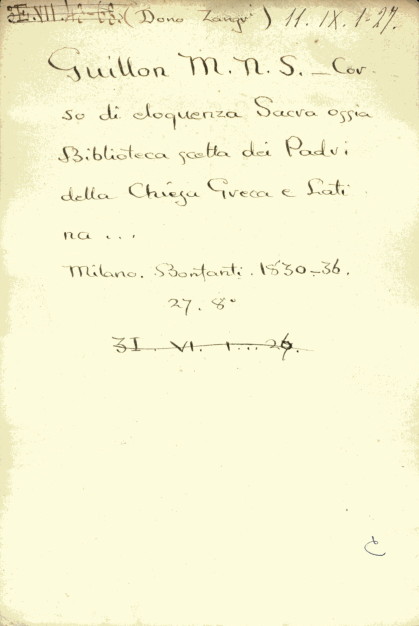 (Dono Zangri) 11. IX. 1-27.
Guillon M. N. S. - Cor-
so di eloquenza Sacra ossia
Biblioteca scelta dei Padri
della Chiesa Greca e Lati
na ...
Milano. Bonfanti. 1830-36.
27. 8°
31. VI. 1...26.